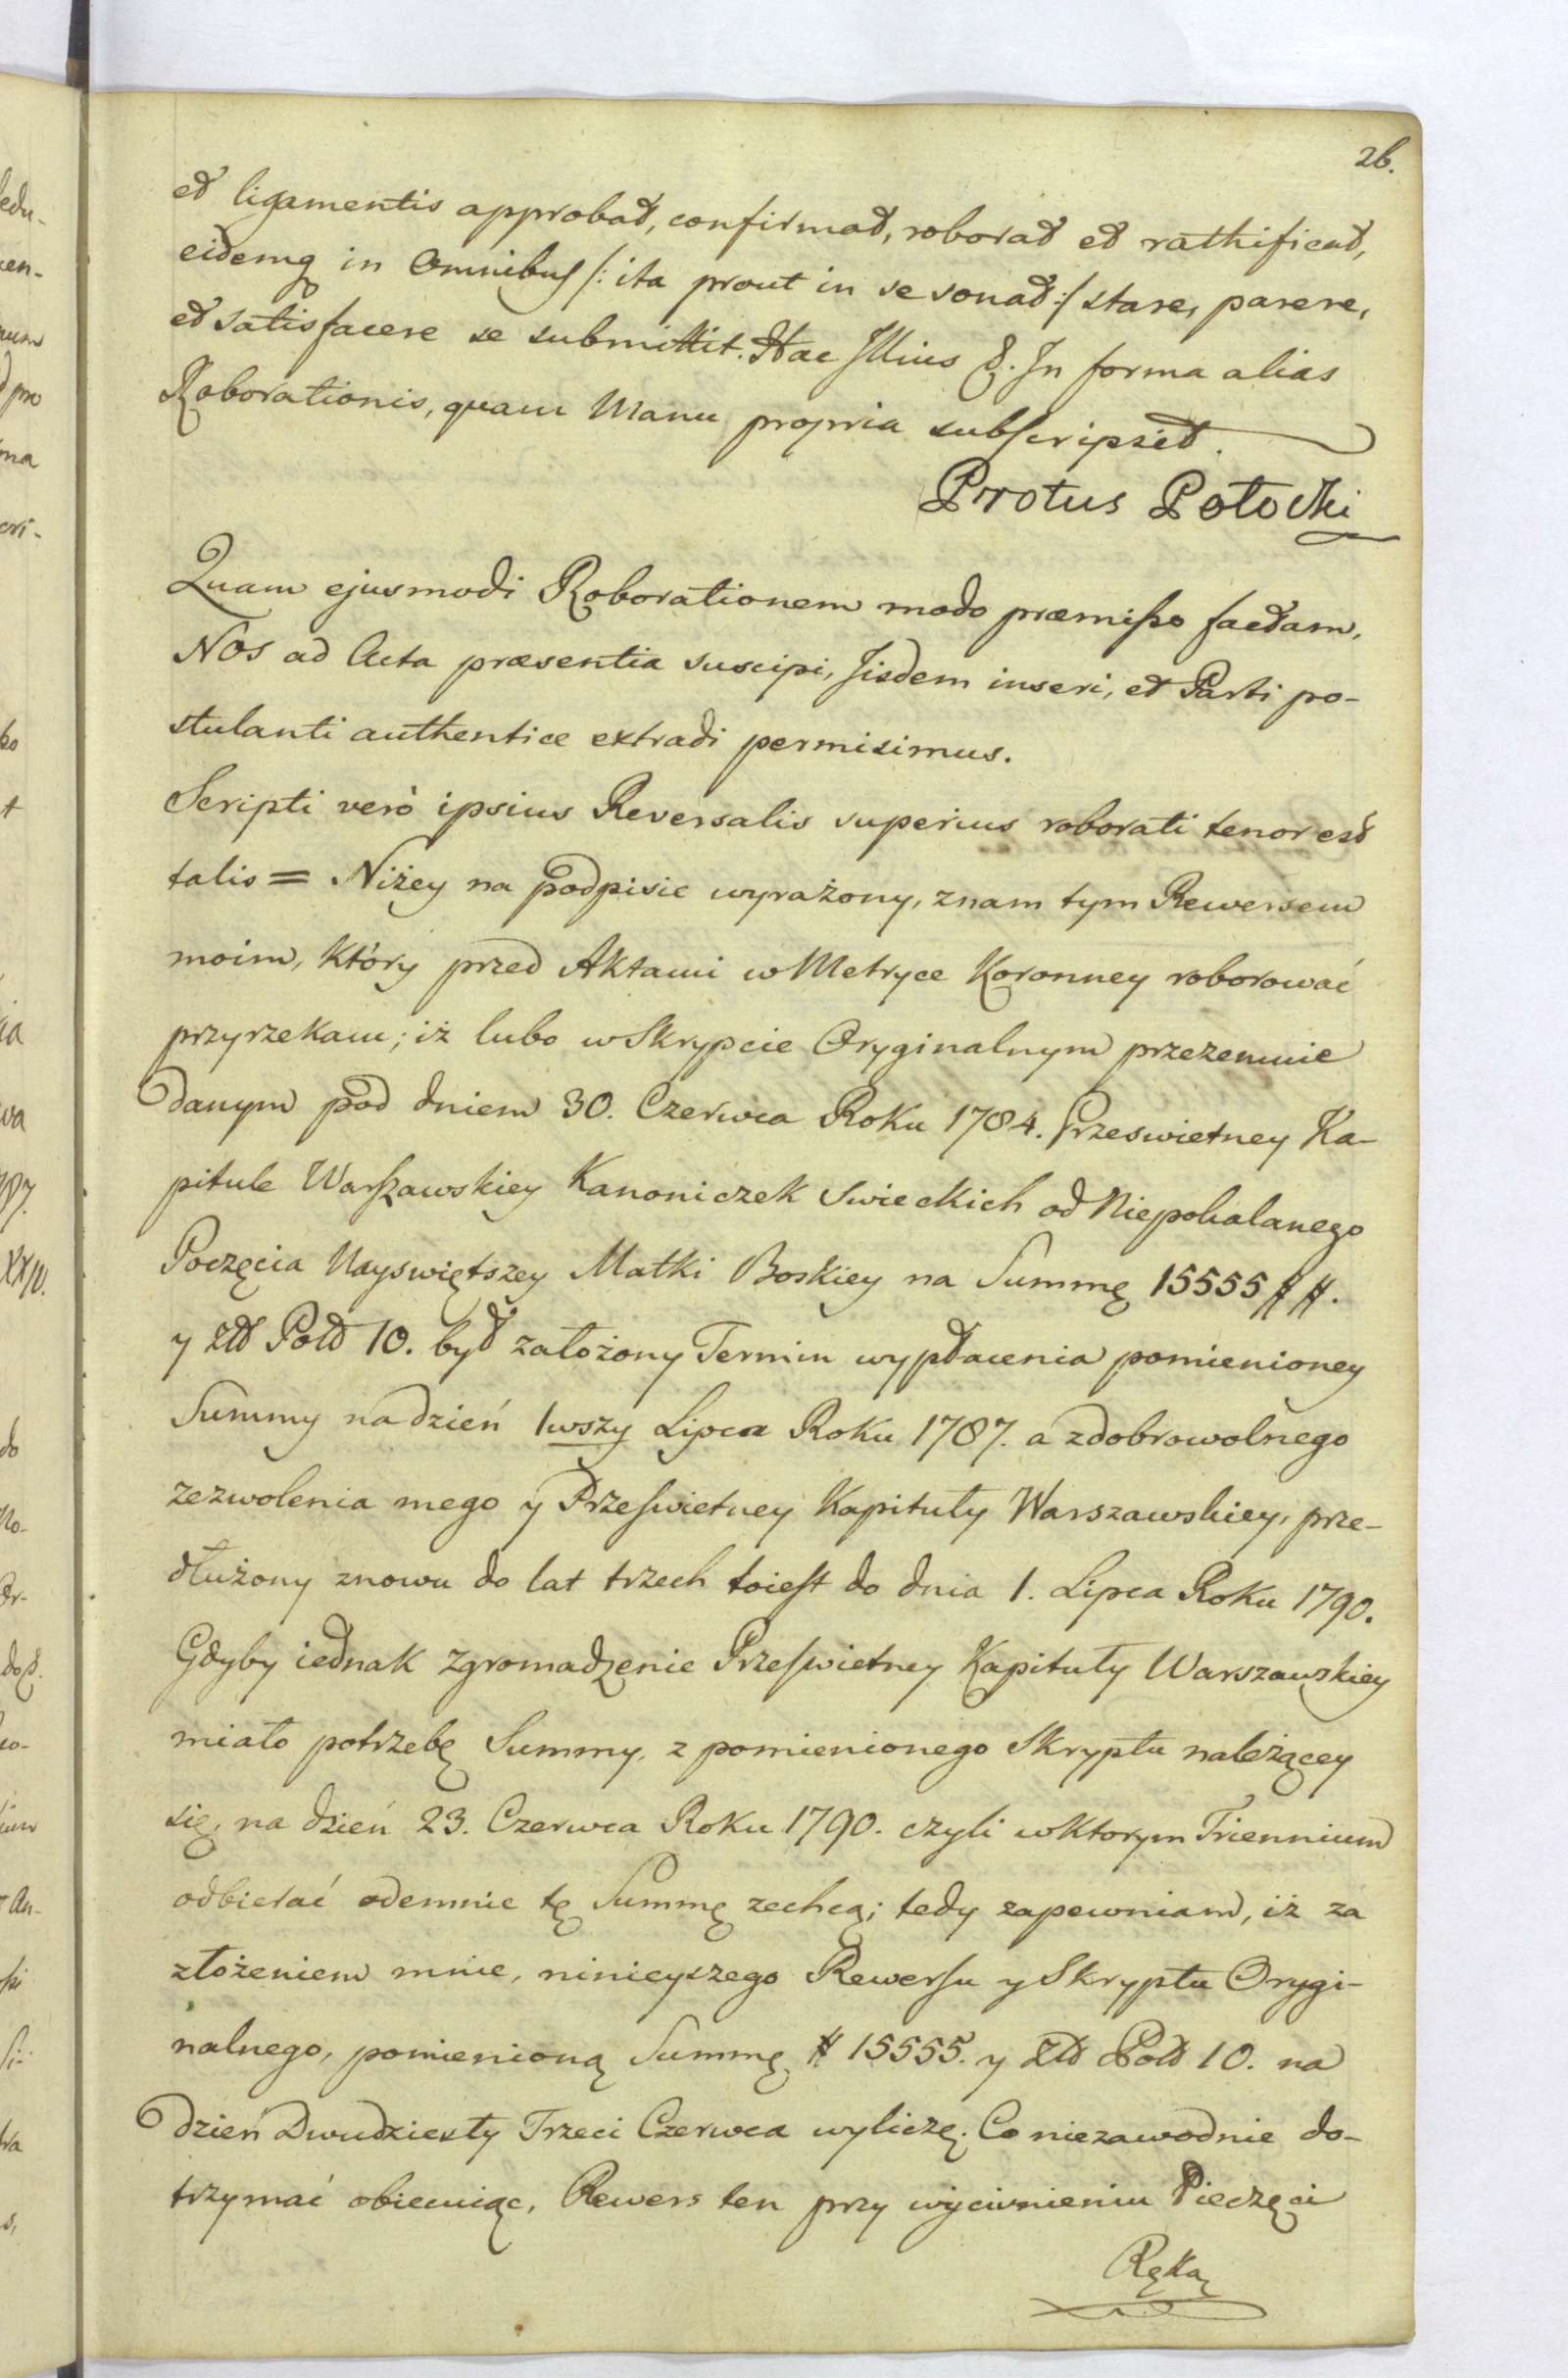 26.
et ligamentis approbat, confirmat, roborat et rathificat,
eidemq in Omnibus /: ita prout in se sonat :/ stare, parere,
et satisfacere se submittit. Hac Illius &. In forma alias
Roborationis, quam Manu propria subscripsit.
Protus Potocki
Quam ejusmodi Roborationem modo præmisso factam,
NOS ad Acta præsentia suscipi, Iisdem inseri, et Parti po-
stulanti authentice extradi permisimus.
Scripti verò ipsius Reversalis superius roborati tenor est
talis = Niżey na podpisie wyrażony, znam tym Rewersem
moim, który przed Aktami w Metryce Koronney roborować
przyrzekam; iż lubo w Skrypcie Oryginalnym przezemnie
danym pod dniem 30. Czerwca Roku 1784. Przeswietney Ka-
pitule Warszawskiey Kanoniczek Swieckich od Niepokalanego
Poczęcia Nayswiętszey Matki Boskiey na Summę 15555 ##.
y Złt Polt 10. był założony Termin wypłacenia pomienioney
Summy na dzień 1wszy Lipca Roku 1787. a zdobrowolnego
zezwolenia mego y Przeswietney Kapituły Warszawskiey, prze-
dłużony znowu do lat trzech toiest do dnia 1. Lipca Roku 1790.
Gdyby iednak Zgromadzenie Przeswietney Kapituły Warszawskiey
miało potrzebę Summy, z pomienionego Skryptu należącey
się, na dzień 23. Czerwca Roku 1790. czyli wktorym Triennium
odbierać odemnie tę Summę zechcą; tedy zapewniam, iż za
złożeniem mnie, ninieyszego Rewersu y Skryptu Orygi-
nalnego, pomienioną Summę # 15555. y Złt Polt 10. na
dzień Dwudziesty Trzeci Czerwca wyliczę. Co niezawodnie do-
trzymać obiecuiąc, Rewers ten przy wyciśnieniu Pieczęci
Ręką